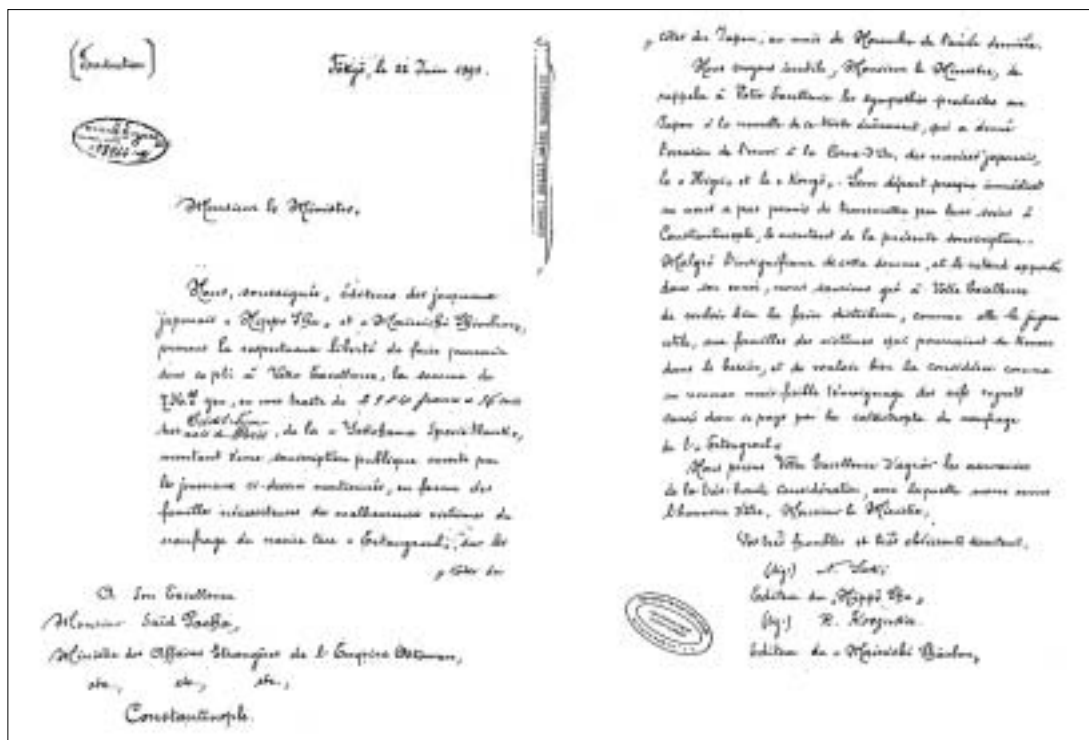 (Traduction)
Tôkyô, le 22 Juin 1891.
Monsieur le Ministre,
Nous, soussignés, éditeurs des journaux
japonais "Nippo Sha" et "Mainichi Shimbun",
prenons la respectueuse liberté de faire parvenir
dans ce pli à Votre Excellence, la somme de
yen, en une traite de francs à
de la "Yokohama Specie Bank",
montant d'une souscription publique ouverte par
les journaux ci-dessus mentionnés, en faveur des
familles nécessiteuses des malheureuses victimes du
naufrage du navire turc "Ertougroul", sur les
côtes du
A Son Excellence
Monsieur Saïd Pacha,
Ministre des Affaires Etrangères de l'Empire Ottoman,
etc., etc., etc.,
Constantinople.
côtes du Japon, au mois de de l'année dernière.
Nous croyons inutile, Monsieur le Ministre, de
rappeler à Votre Excellence les sympathies produites au
Japon à la nouvelle de ce triste événement, qui a donné
l'occasion de l'envoi à la Corne-d'Or, des navires japonais,
le "Hiyei" et le "Kongô". Leur départ presque immédiat
ne nous a pas permis de transmettre par leurs soins à
Constantinople, le montant de la présente souscription.
Malgré l'insignifiance de cette somme, et le retard apporté
dans son envoi, nous saurions gré à Votre Excellence
de vouloir bien la faire distribuer, comme elle le jugera
utile, aux familles des victimes qui pourraient se trouver
dans le besoin, et de vouloir bien la considérer comme
un nouveau mais faible témoignage des vifs regrets
causés dans ce pays par la catastrophe du naufrage
de l'"Ertougroul".
Nous prions Votre Excellence d'agréer les assurances
de la très haute considération, avec laquelle nous avons
l'honneur d'être, Monsieur le Ministre,
Vos très humbles et très obéissants serviteurs.
(sig.) N.
Editeur du "Nippô Sha"
(sig.) R.
Editeur du "Mainichi Shimbun"